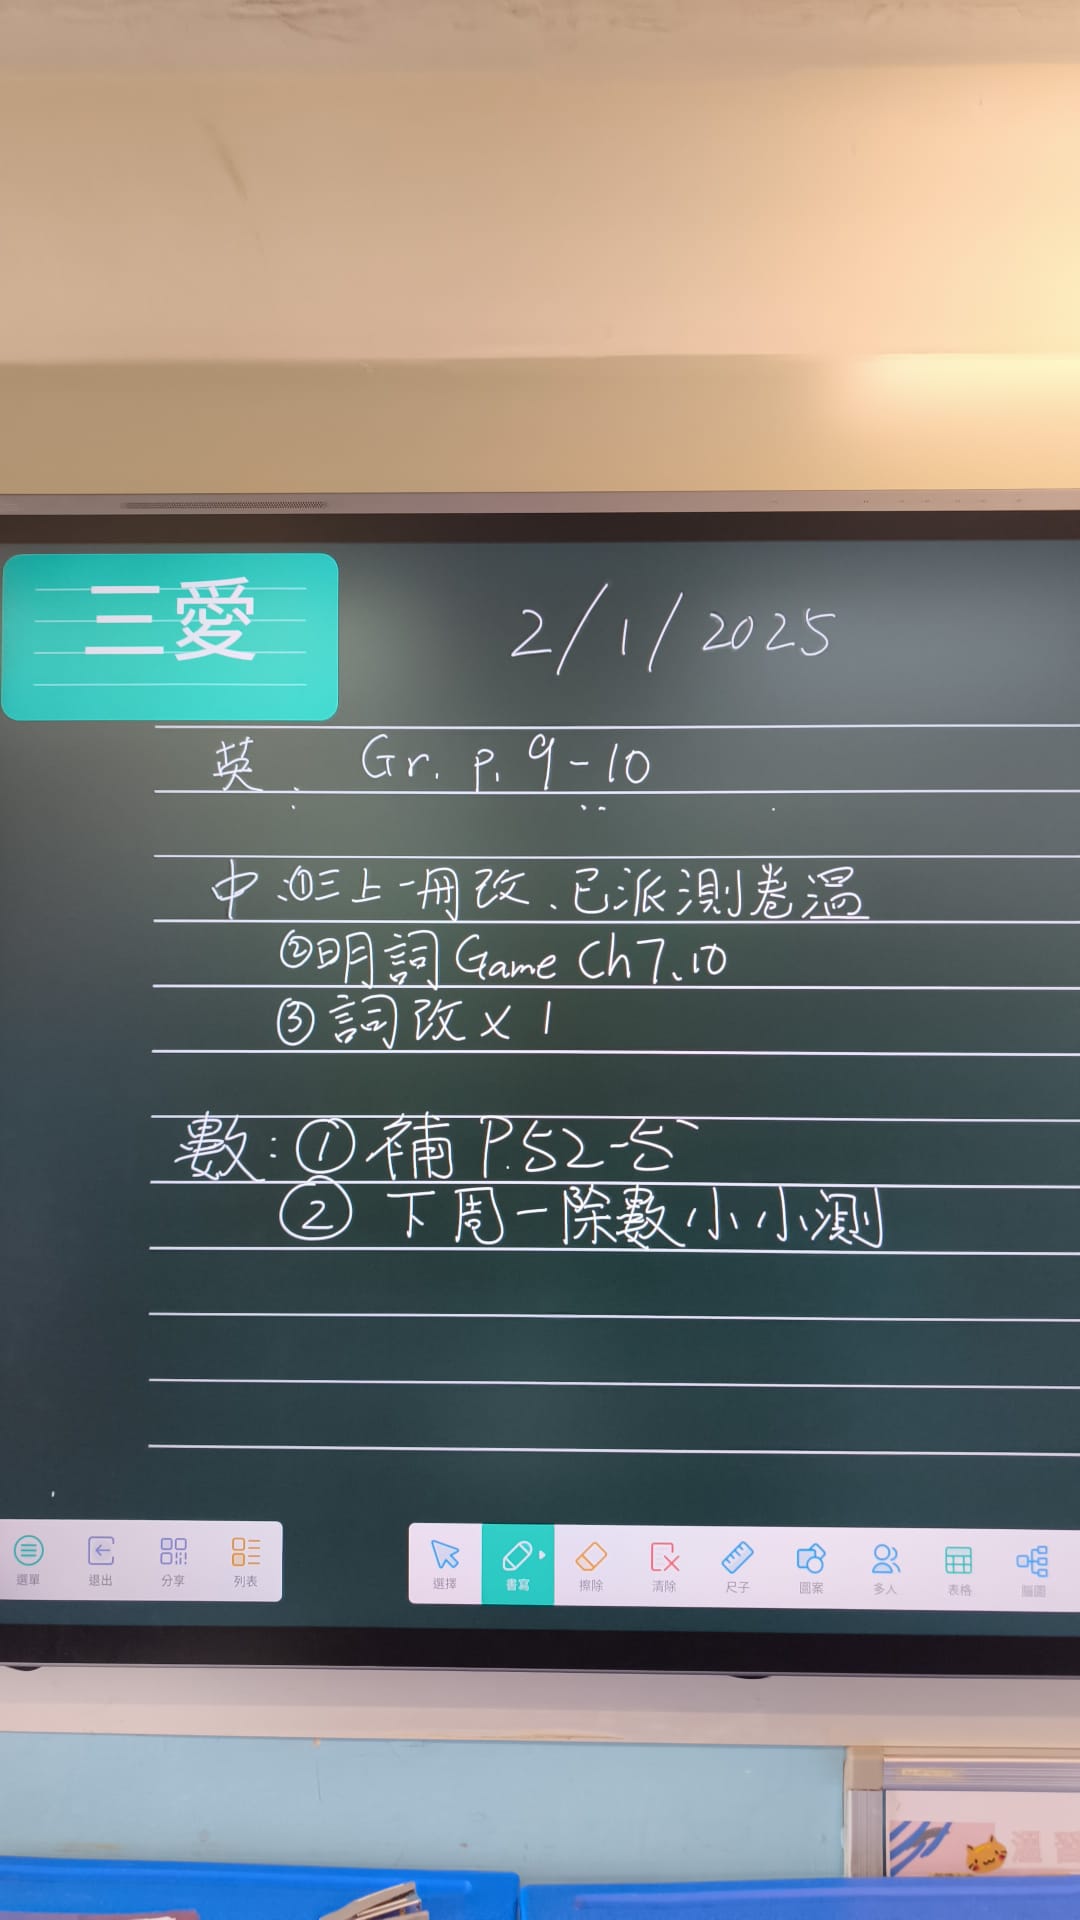 三愛
2/1/2025
英. Gr. p. 9-10
中:①三上一冊改、已派測卷溫
②明詞 Game Ch7、10
③詞改 x 1
數:① 補 P.52-5
② 下周一除數小小測
選單 退出 分享 列表 選擇 書寫 擦除 清除 尺子 圖案 多人 表格 腦圖